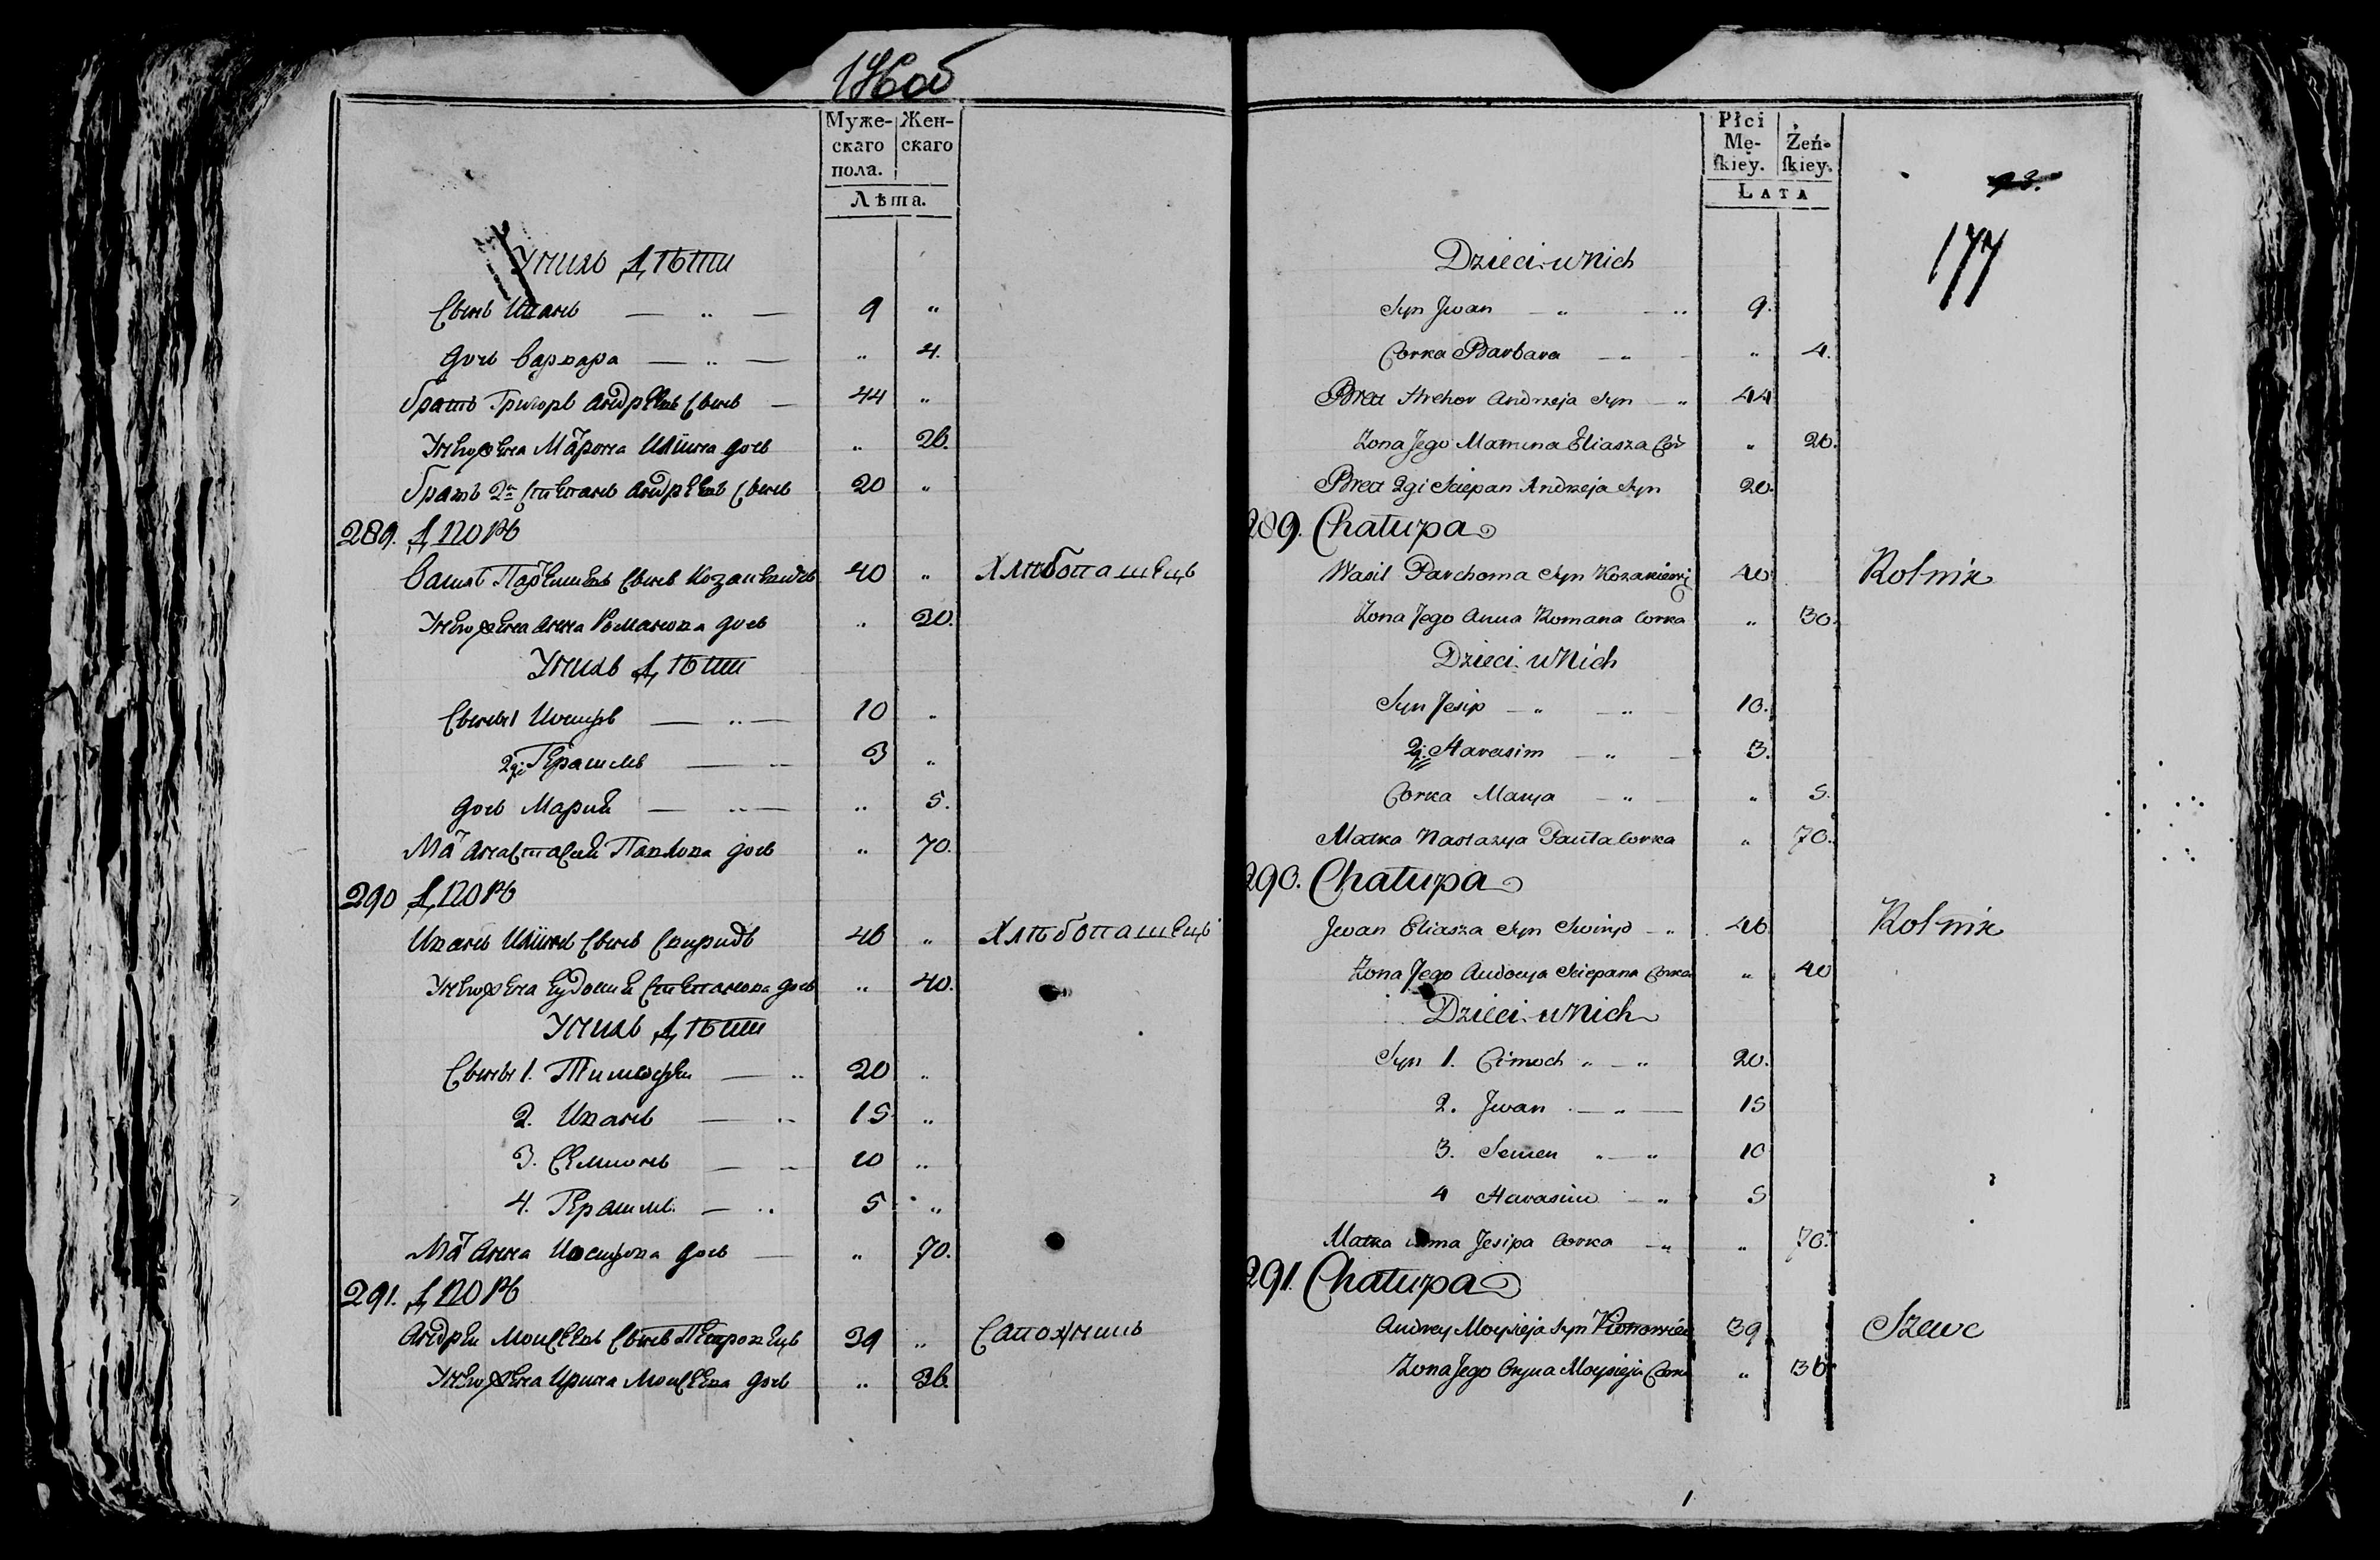 176об
Муже- Жен-
скаго скаго
пола.
Лѣта.
Унихъ Дѣти
Сынъ Иванъ — „ — 9 „
Дочь Варвара — „ — „ 4.
Братъ Григорь Андреевъ Сынъ — 44 „
Унего жена Марѳа Илiина дочь „ 26.
Братъ 2й Степанъ Андреевъ Сынъ 20 „
289. Дворъ
Василь Парѳеиевъ Сынъ Козакевичъ 40 „ Хлѣбопашецъ
Унего жена Анна Романова дочь „ 20.
Унихъ Дѣти
Сыны 1 Иосифъ — „ — 10 „
2й Герасимъ — „ 3 „
Дочь Мария — „ — „ 5.
Мать Анастасия Павлова дочь „ 70.
290 Дворъ
Иванъ Илiинъ Сынъ Свиридъ 46 „ Хлѣбопашецъ
Унего жена Евдокия Степанова дочь „ 40.
Унихъ Дѣти
Сыны 1. Тимофеи — „ 20 „
2. Иванъ — „ 15 „
3. Семионъ — „ 10 „
4. Герасимъ — „ 5 „
Мать Анна Иосифова дочь — „ 70.
291. Дворъ
Андреи Моисеевъ Сынъ 39 „ Сапожникъ
Унего жена Ирина Моисеева дочь „ 36.
Płci
Mę- Żeń-
ſkiey. ſkiey.
LATA
93.
177
Dzieci u Nich
Syn Jwan — „ — „ 9.
Corka Barbara — „ — „ 4.
Brat Hrehor Andrzeja Syn — „ 44
Zona Jego Marcina Eliasza Cor „ 26.
Brat 2gi Sciepan Andrzeja Syn 20.
289. Chałupa
Wasil Parchoma Syn Kozakiewi 40 Rolnik
Zona Jego Anna Romana Corka „ 30.
Dzieci u Nich
Syn Jesip — „ — „ 10.
2gi Harasim — „ — 3.
Corka Marya — „ — „ 5.
Matka Nastazya Pawła Corka „ 70.
290. Chałupa
Jwan Eliasza Syn Swiryd — „ 46 Rolnik
Zona Jego Audocya Sciepana Corka „ 40
Dzieci u Nich
Syn 1. Cimoch „ — „ 20.
2. Jwan — „ — 15
3. Semen „ — „ 10
4 Harasim — „ 5
Matka Anna Jesipa Corka — „ „ 70.
291. Chałupa
Andrey Moysieja Syn 39 Szewc
Zona Jego Oryna Moysieja Corka „ 36